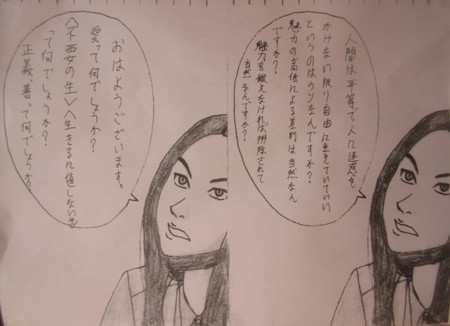 人間は平等で人に迷惑を
かけない限り自由に生きていていい
というのはウソなんですか?
魅力の高低による差別は当然なん
ですか?
魅力を鍛えなければ排除されて
当然なんですか?
おはようございます。
愛って何でしょうか?
<不西女の生><生きるに値しない生>
って何でしょうか?
正義、善って何でしょうか?